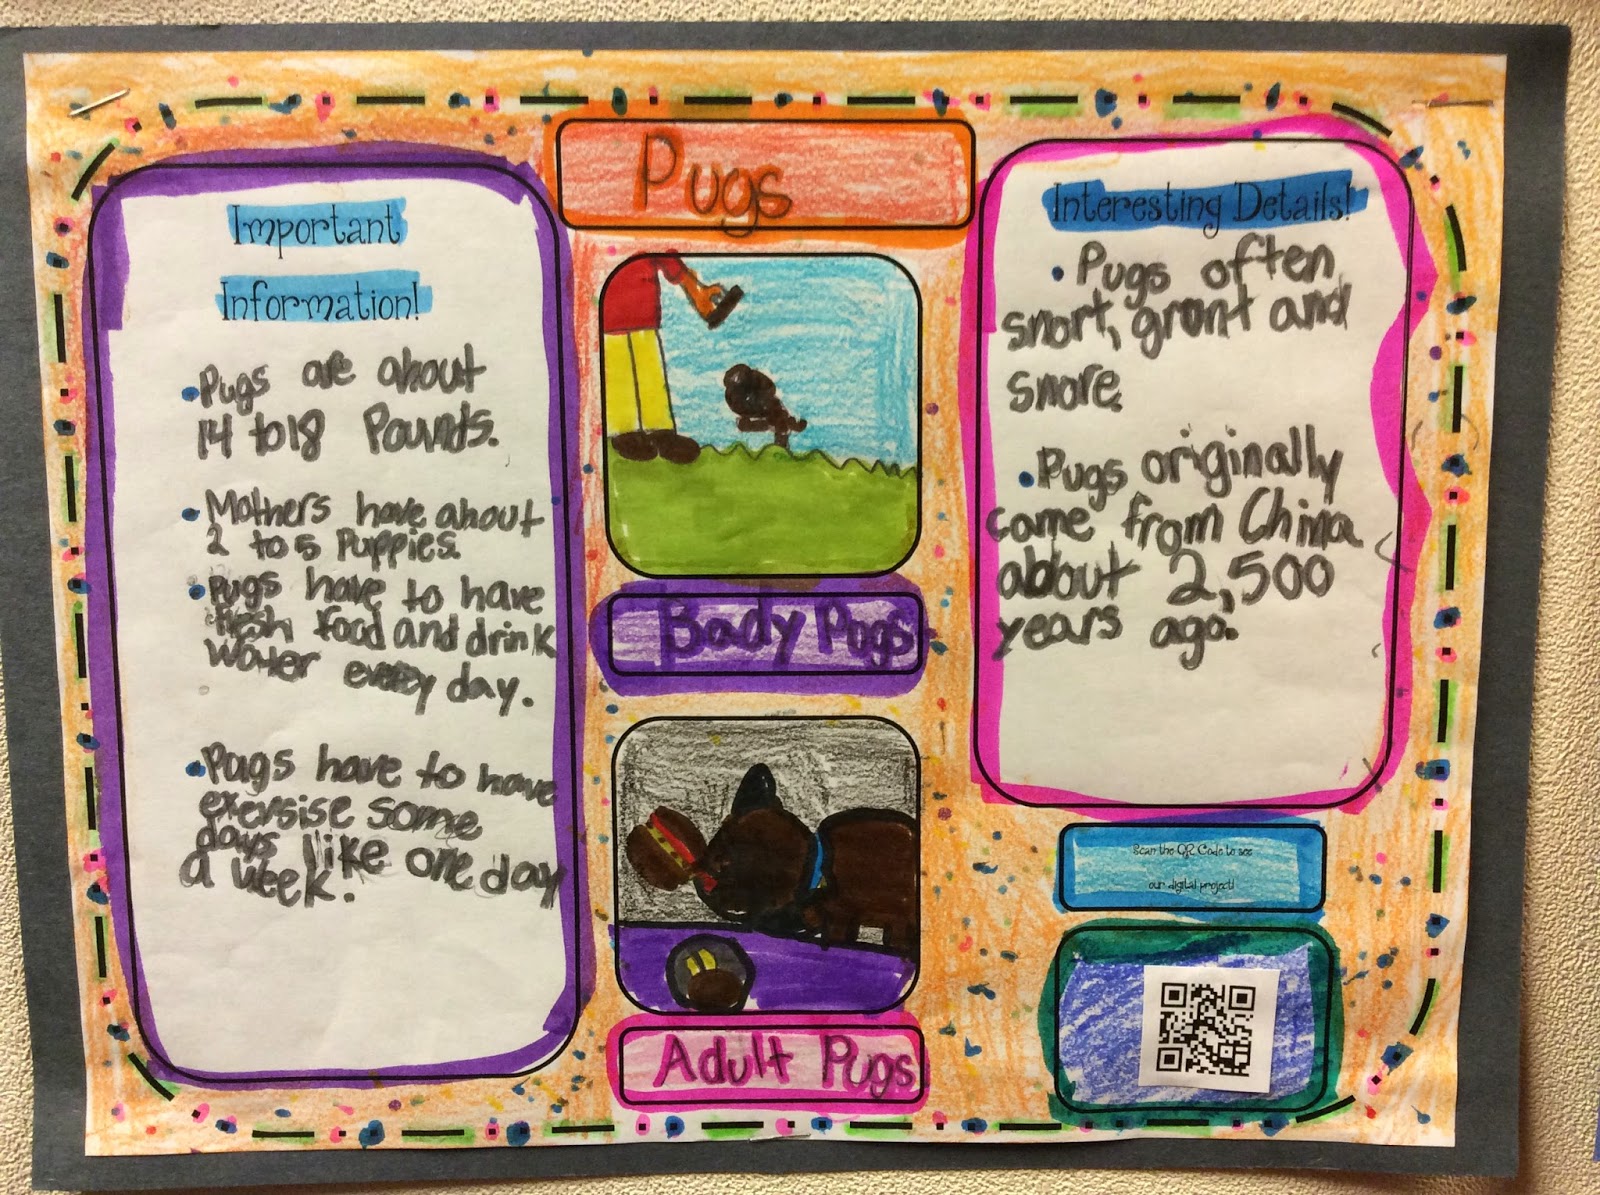 Pugs
Important
Information!
• Pugs are about
14 to 18 Pounds.
• Mothers have about
2 to 5 Puppies.
• Pugs have to have
fresh food and drink
water every day.
• Pugs have to have
exersise some
days like one day
a week.
Bady Pugs
Adult Pugs
Interesting Details!
• Pugs often
snort, grunt and
snore.
• Pugs originally
came from China
about 2,500
years ago.
Scan the QR Code to see
our digital project!